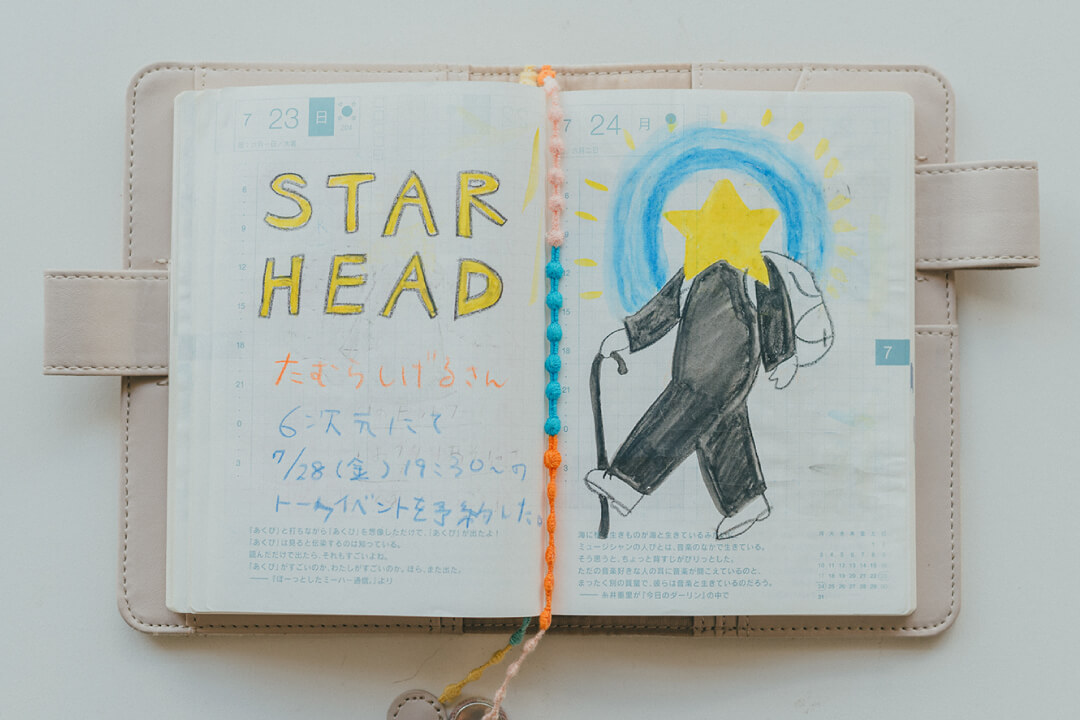 7 23 日
STAR
HEAD
たむらしげるさん
6次元にて
7/28(金)19:30〜の
トークイベントを予約した。
「あくび」と打ちながら「あくび」を想像しただけで、「あくび」が出たよ!
「あくび」は見ると伝染するのは知っている。
読んだだけで出たら、それもすごいよね。
「あくび」がすごいのか、わたしがすごいのか。ほら、また出た。
——『ぼーっとしたミーハー通信。』より
7 24 月
7
ミュージシャンの人びとは、音楽のなかで生きている。
そう思うと、ちょっと背すじがぴりっとした。
ただの音楽好きな人の耳に音楽が聞こえているのと、
まったく別の質量で、彼らは音楽と生きているのだろう。
——糸井重里が『今日のダーリン』の中で